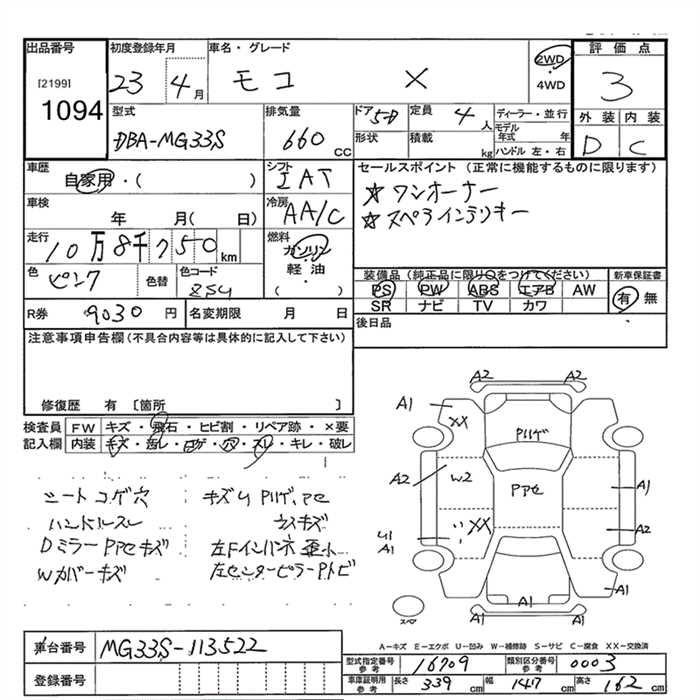 出品番号
[2199]
1094
初度登録年月
23 4月
車名・グレード
モコ X
2WD
・
4WD
評価点
3
外装 内装
D C
型式
DBA-MG33S
排気量
660
CC
ドア 5D
形状
定員 4人
積載 kg
ディーラー・並行
モデル年式 年
ハンドル 左・右
車歴
自家用・( )
シフト
IAT
車検
年 月( 日)
冷房
AA/C
走行
10万8千750km
燃料
ガソリン
・
軽油
( )
色
ピンク
色替
色コード
Z5U
R券 9030円
名変期限 月 日
セールスポイント (正常に機能するものに限ります)
☆ワンオーナー
☆スペアインテリキー
装備品(純正品に限り○をつけてください)
PS PW ABS エアB AW
SR ナビ TV カワ
新車保証書
有 無
後日品
注意事項申告欄(不具合内容等は具体的に記入して下さい)
修復歴 有 〔箇所 〕
検査員記入欄
FW キズ・飛石・ヒビ割・リペア跡・×要
内装 キズ・汚レ・コゲ・穴・スレ・キレ・破レ
シートコゲ穴
ハンドルスレ
DミラーPアセキズ
Wカバーキズ
キズUPハゲ、アセ
ウスキズ
左Fインパネ歪小
左センターピラーPトビ
A2 A2
A1
XX
Pハゲ
A2
W2
Pアセ
A1
XX
A2
U1
A1
A1 A1
A1
スペア
A-キズ E-エクボ U-凹み W-補修跡 S-サビ C-腐食 XX-交換済
車台番号
MG33S-113522
登録番号
型式指定番号
参考
16709
類別区分番号
参考
0003
車庫証明用
参考
長さ 339cm
幅 147cm
高さ 162cm